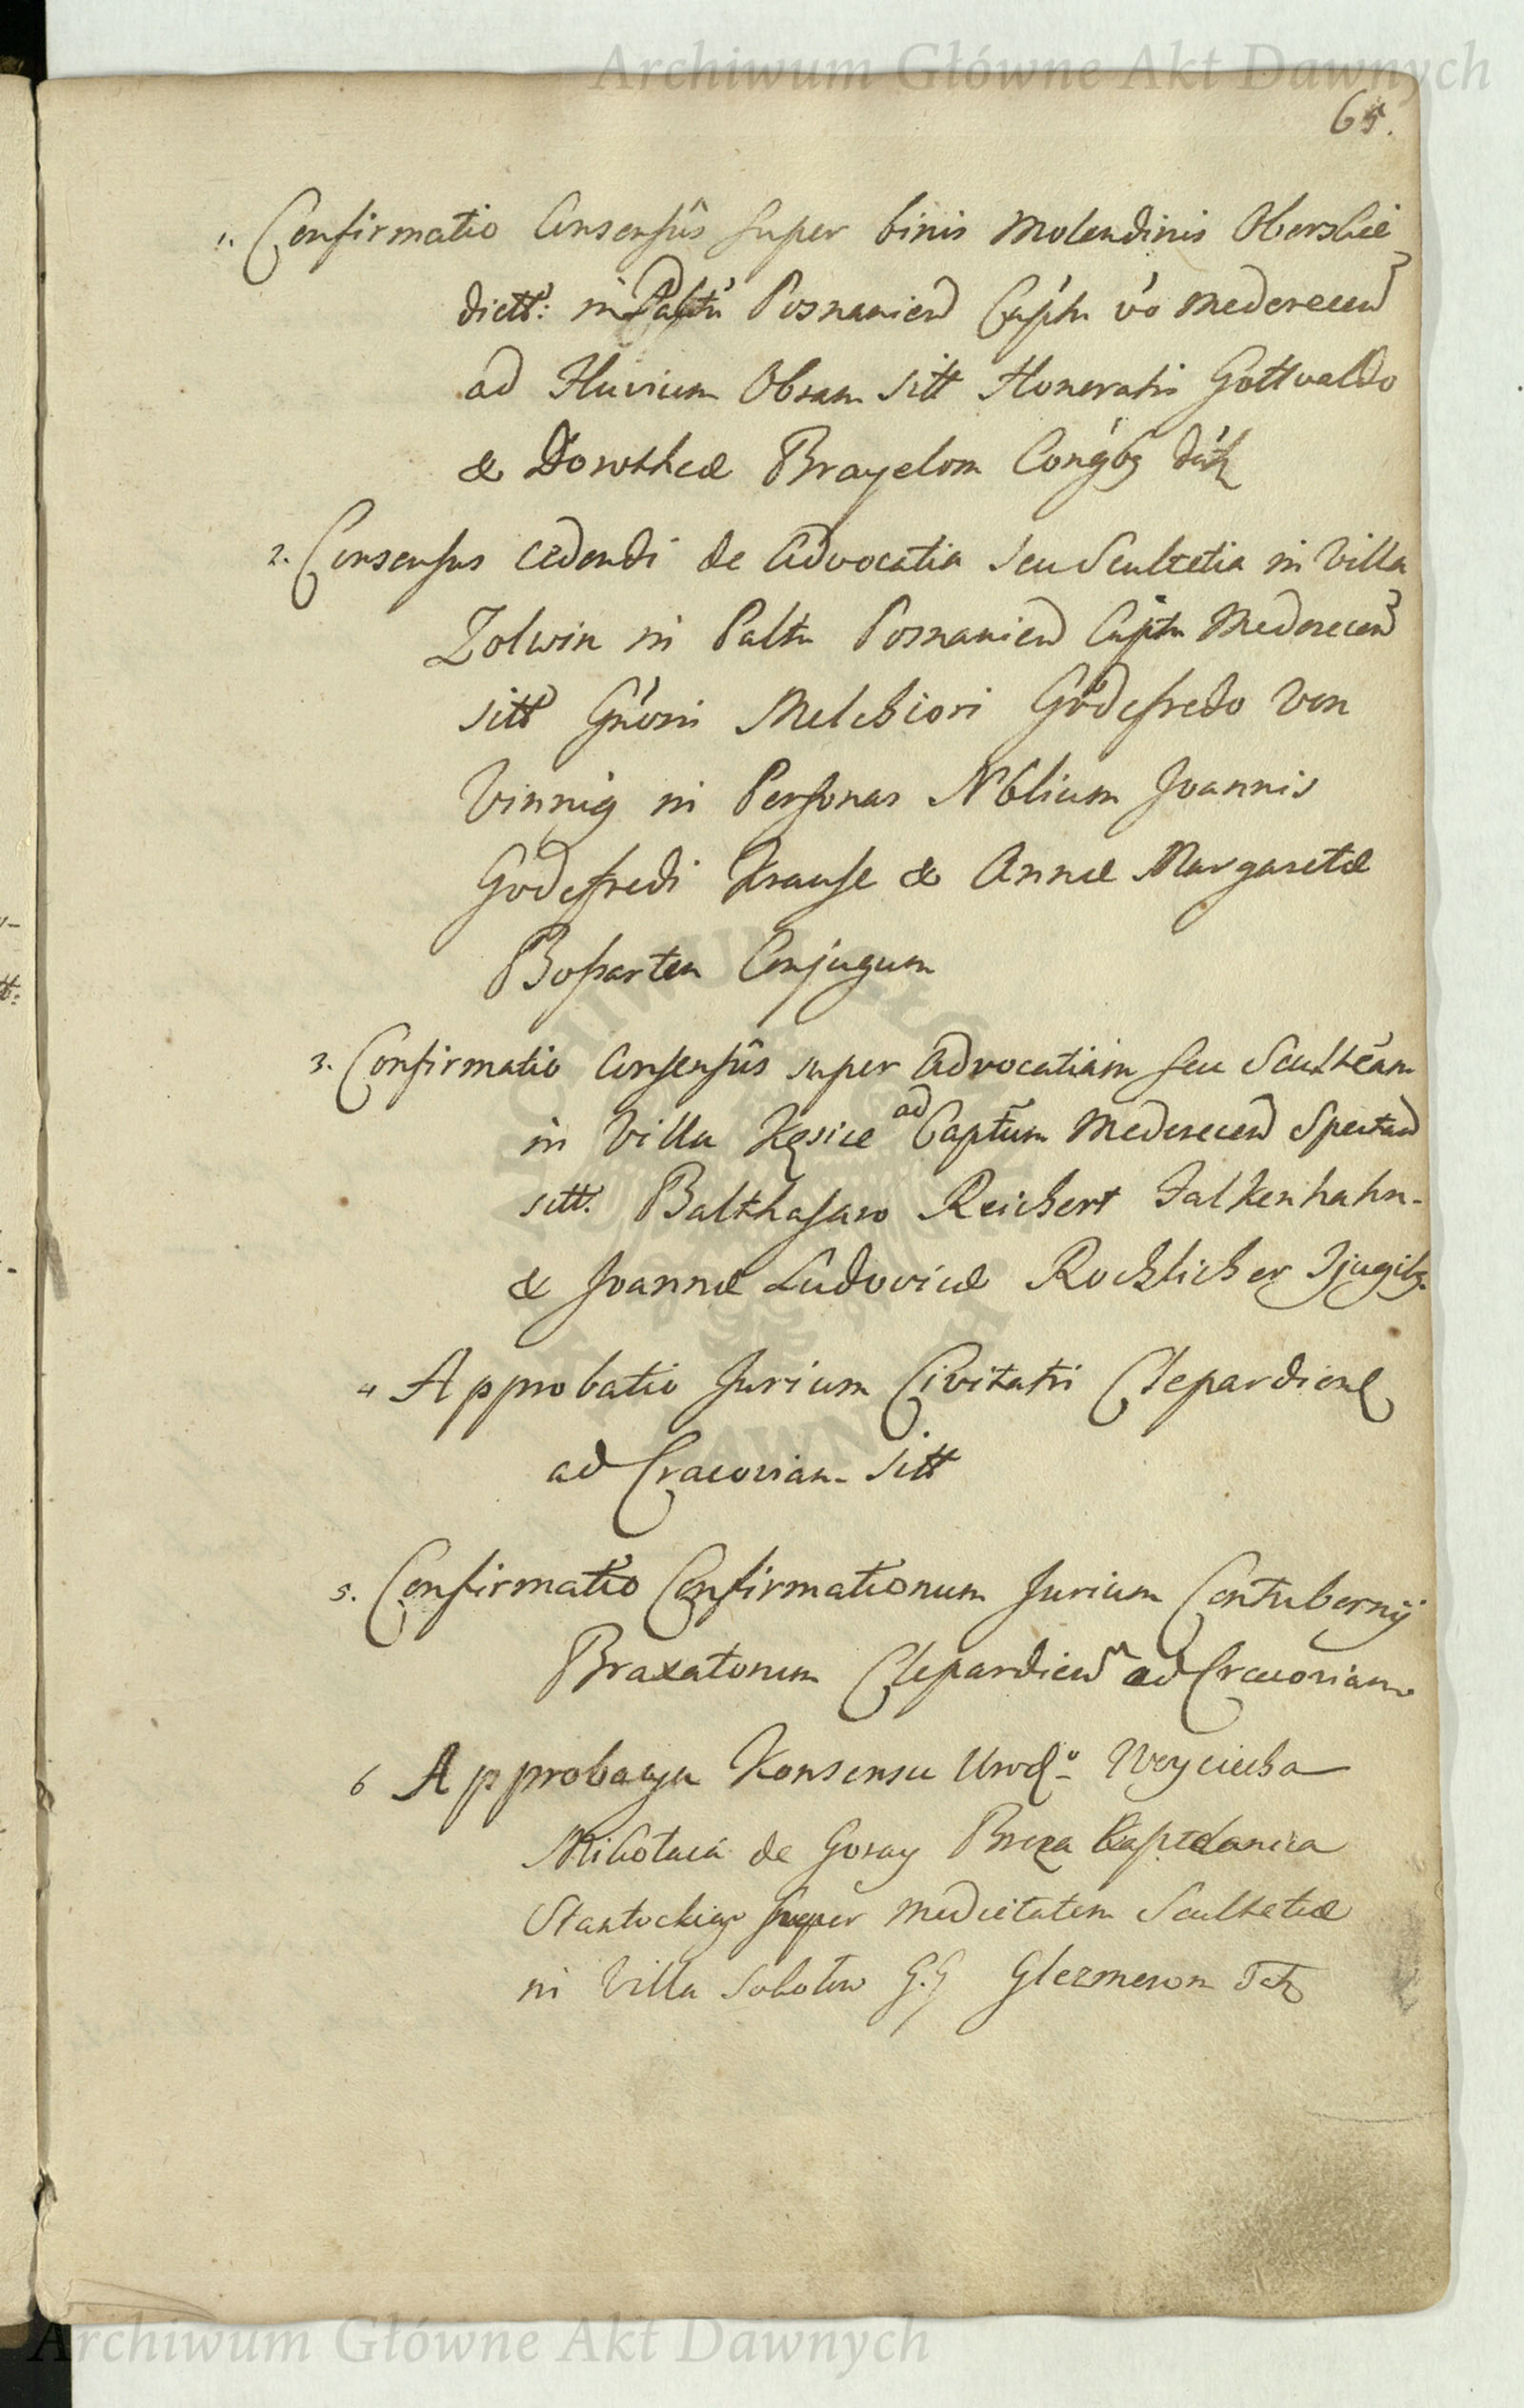 Archiwum Główne Akt Dawnych
65.
1. Confirmatio Consensûs super binis Molendinis Obersbie
dictt: in Palttu Posnanien Captu vo Mederecen
ad Fluvium Obram sitt Honoratis Gottvaldo
& Dorotheæ Brayelom
2. Consensus cedendi de Advocatia seu Scultetia in Villa
Zolwin in Paltu Posnanien Captu Mederecen
sitt Gnoso Melchiori Godefredo von
Vinnig in Personas Nblium Joannis
Godefredi Krause & Annæ Margaretæ
Bosarten Conjugum
3. Confirmatio Consensûs super Advocatiam seu Sculteam
in Villa Kęsice ad Captum Mederecen Spectan
sitt. Balthasaro Reichert Falkenhahn
& Joannæ Ludovicæ Rochlicher
4 Approbatio Jurium Civitatis Clepardien
ad Cracoviam sitt
5. Confirmatio Confirmationum Jurium Contubernÿ
Braxatorum Clepardien ad Cracoviam
6 Approbacya Konsensu Urodo Woyciecha
Mikołaia de Goray Breza Kasztelanica
Santockiego super medietatem Scultetiæ
in Villa
Archiwum Główne Akt Dawnych